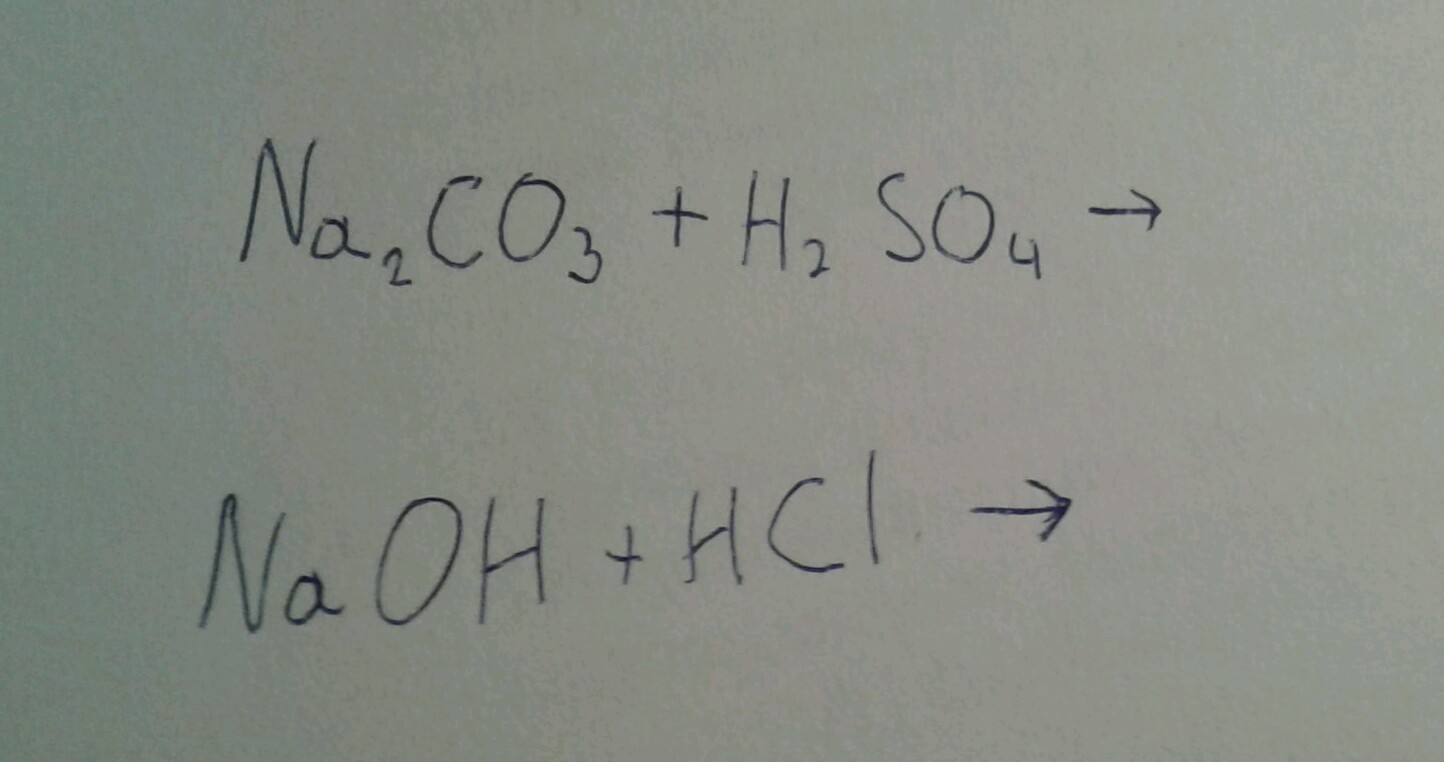 Na₂CO₃ + H₂SO₄ →
NaOH + HCl →